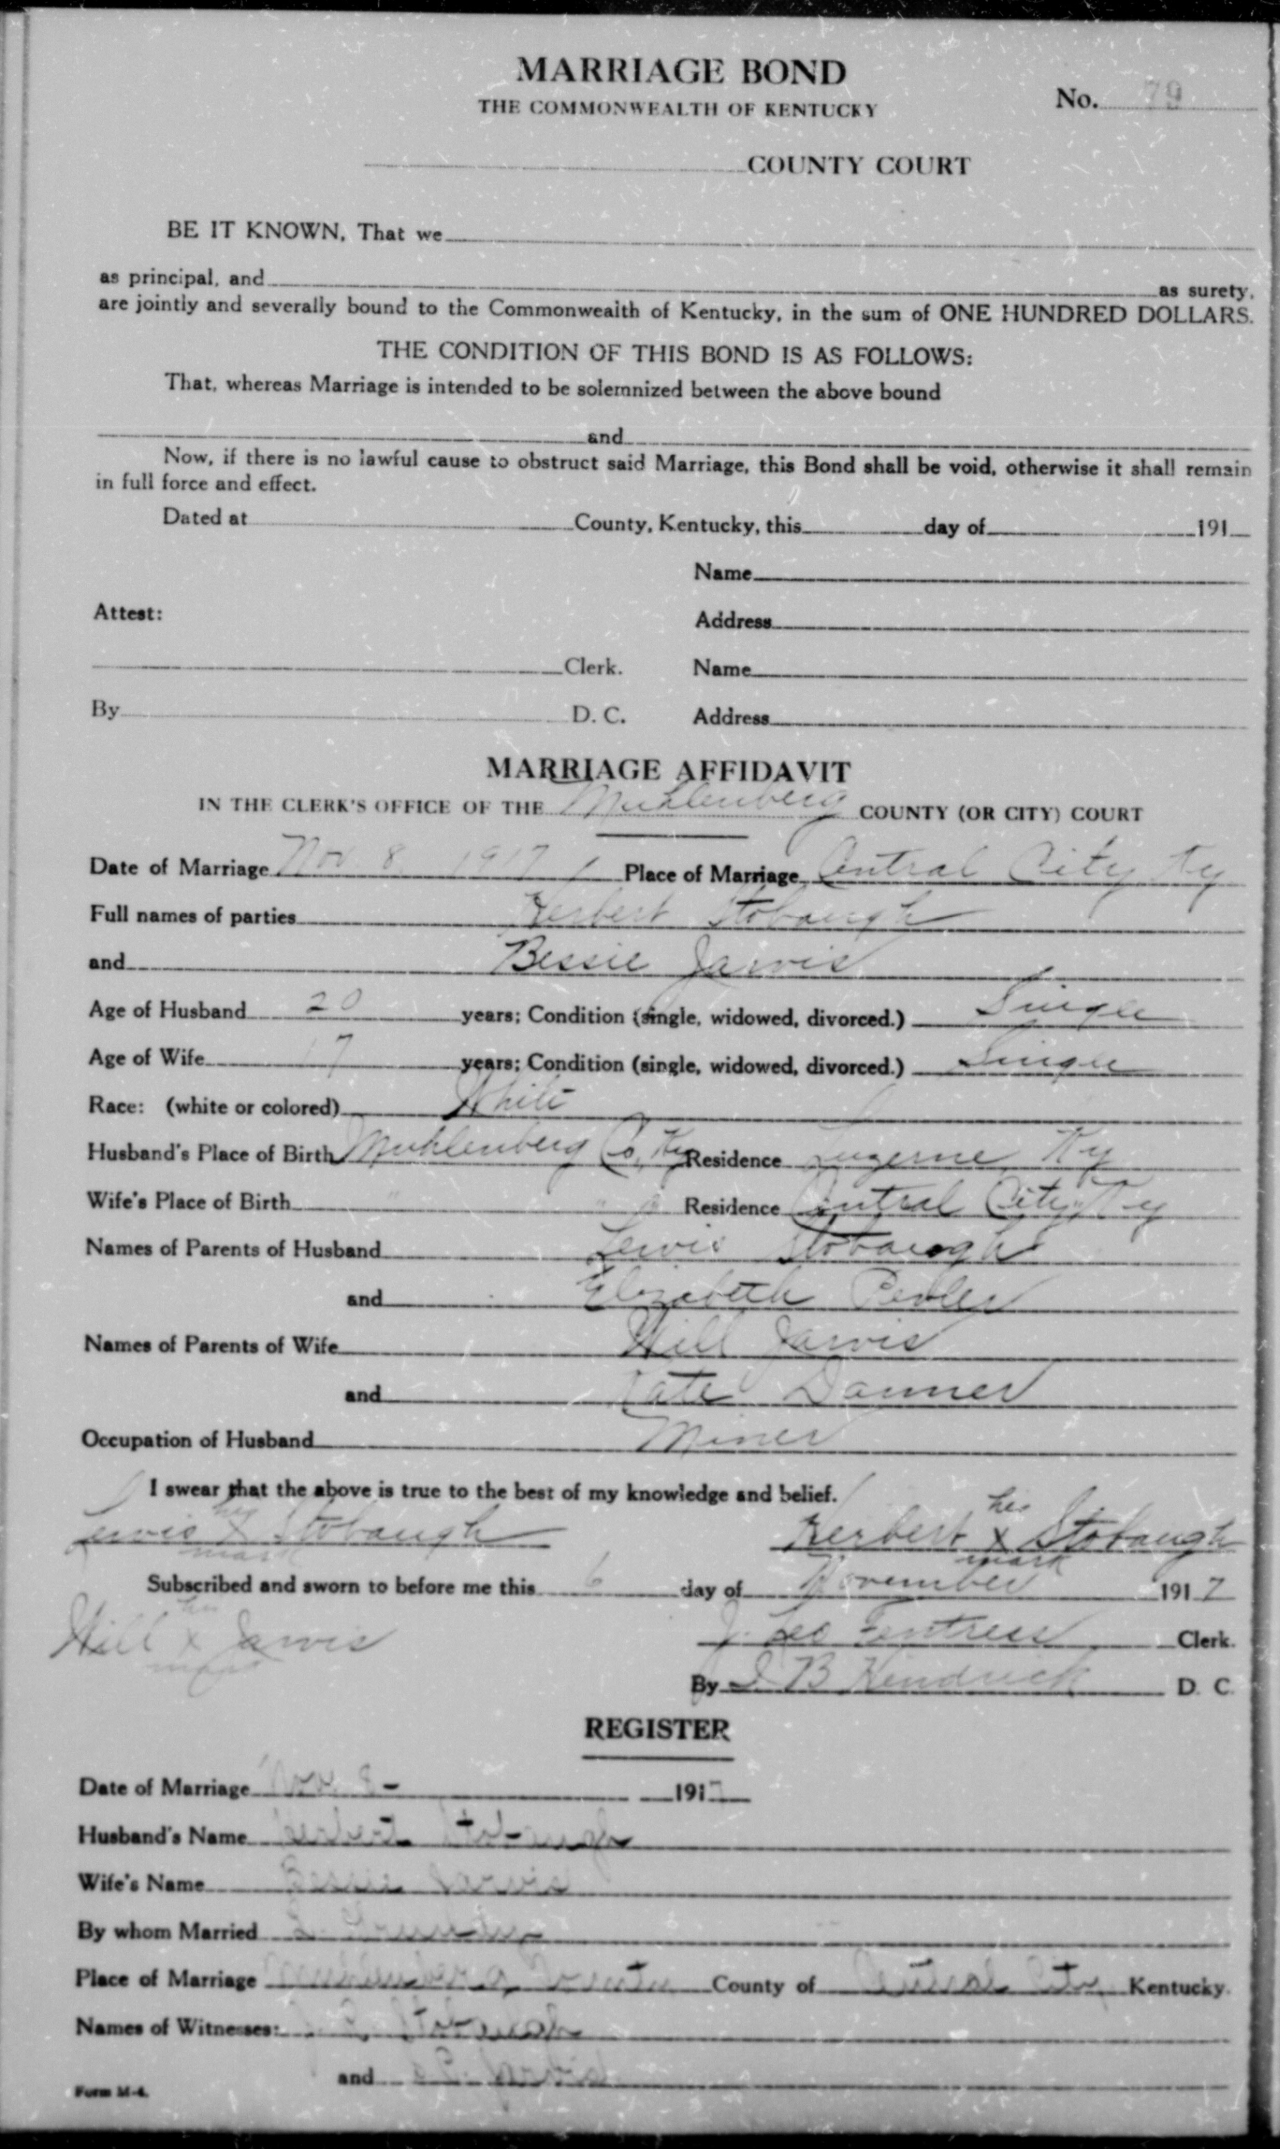 MARRIAGE BOND
THE COMMONWEALTH OF KENTUCKY
No. 79
COUNTY COURT
BE IT KNOWN, That we
as principal, and as surety,
are jointly and severally bound to the Commonwealth of Kentucky, in the sum of ONE HUNDRED DOLLARS.
THE CONDITION OF THIS BOND IS AS FOLLOWS:
That, whereas Marriage is intended to be solemnized between the above bound
and
Now, if there is no lawful cause to obstruct said Marriage, this Bond shall be void, otherwise it shall remain
in full force and effect.
Dated at County, Kentucky, this day of 191
Name
Attest: Address
Clerk. Name
By D. C. Address
MARRIAGE AFFIDAVIT
IN THE CLERK'S OFFICE OF THE Muhlenberg COUNTY (OR CITY) COURT
Date of Marriage Nov 8 1917 Place of Marriage Central City Ky
Full names of parties Herbert Stobaugh
and Bessie Jarvis
Age of Husband 20 years; Condition (single, widowed, divorced.) Single
Age of Wife 17 years; Condition (single, widowed, divorced.) Single
Race: (white or colored) White
Husband's Place of Birth Muhlenberg Co, Ky Residence Luzerne, Ky
Wife's Place of Birth " " " Residence Central City, Ky
Names of Parents of Husband Lewis Stobaugh
and Elizabeth
Names of Parents of Wife Will Jarvis
and Kate Danner
Occupation of Husband Miner
I swear that the above is true to the best of my knowledge and belief.
Lewis his X mark Stobaugh Herbert his X mark Stobaugh
Subscribed and sworn to before me this 6 day of November 1917
Will his X mark Jarvis J. Leo Fentress Clerk.
By J B Kendrick D. C.
REGISTER
Date of Marriage Nov. 8- 1917
Husband's Name Herbert Stobaugh
Wife's Name Bessie Jarvis
By whom Married
Place of Marriage Muhlenberg County County of Central City Kentucky.
Names of Witnesses: Stobaugh
and Jarvis
Form M-4.